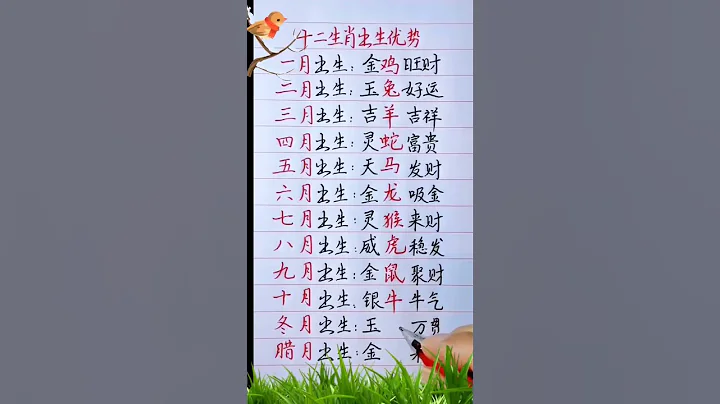 十二生肖出生优势
一月出生：金鸡旺财
二月出生：玉兔好运
三月出生：吉羊吉祥
四月出生：灵蛇富贵
五月出生：天马发财
六月出生：金龙吸金
七月出生：灵猴来财
八月出生：威虎稳发
九月出生：金鼠聚财
十月出生：银牛牛气
冬月出生：玉 万贯
腊月出生：金